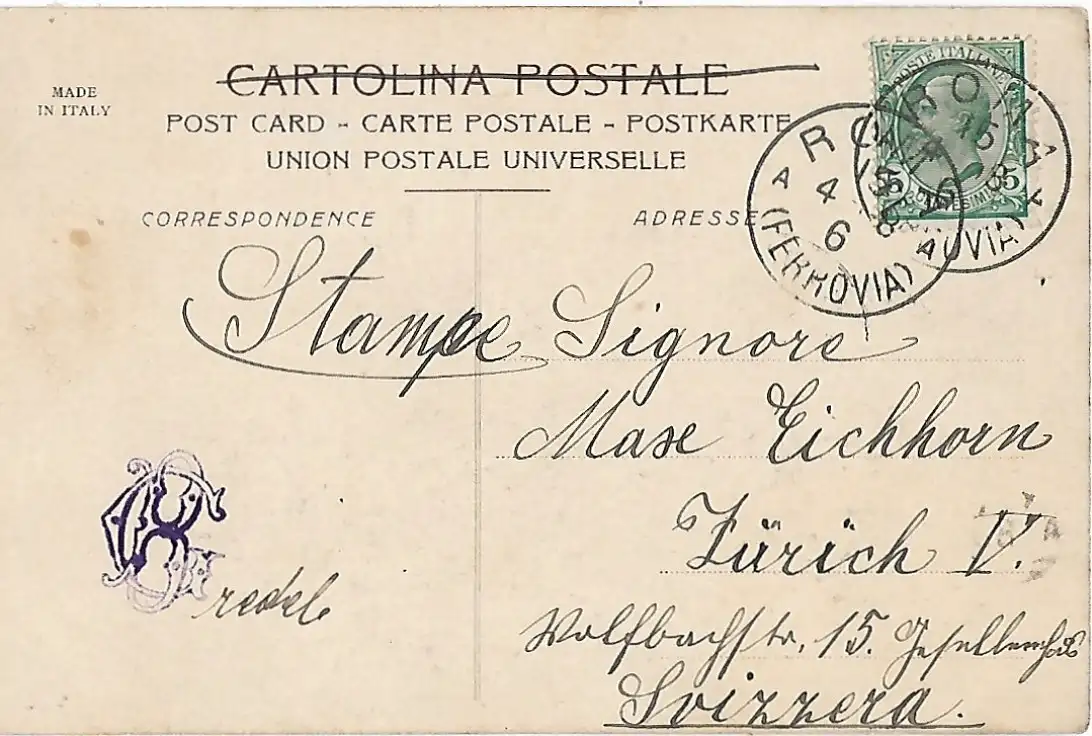 MADE
IN ITALY
CARTOLINA POSTALE
POST CARD - CARTE POSTALE - POSTKARTE
UNION POSTALE UNIVERSELLE
CORRESPONDENCE
ADRESSE
POSTE ITALIANE
5 CENTESIMI 5
ROMA
4 6
(FERROVIA)
Stampe
Signore
Maxe Eichhorn
Zürich V.
Wolfbachstr. 15. Gesellenhaus
Svizzera.